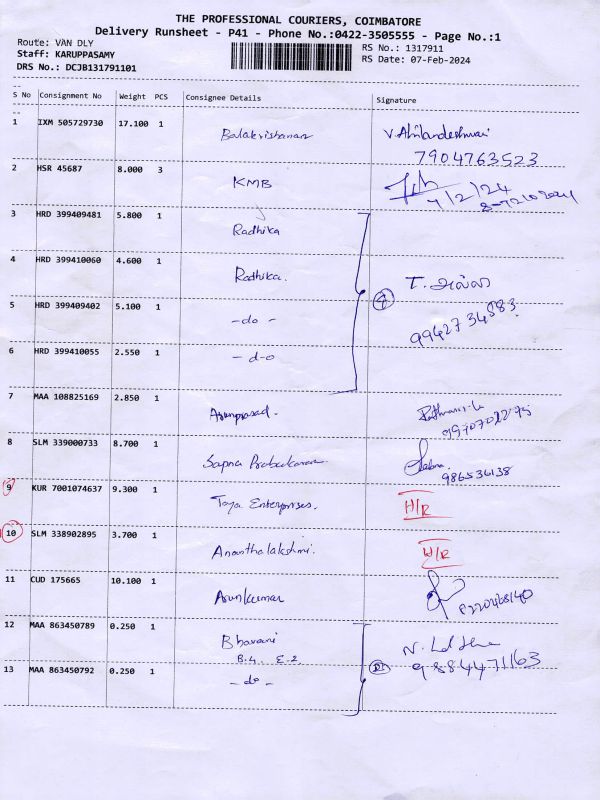 THE PROFESSIONAL COURIERS, COIMBATORE
Delivery Runsheet - P41 - Phone No.:0422-3505555 - Page No.:1
Route: VAN DLY
Staff: KARUPPASAMY
DRS No.: DCJB131791101
RS No.: 1317911
RS Date: 07-Feb-2024
S No Consignment No Weight PCS Consignee Details Signature
1 IXM 505729730 17.100 1 Balakrishanan
7904763523
2 HSR 45687 8.000 3 KMB
7/2/24
3 HRD 399409481 5.800 1 Radhika
4 HRD 399410060 4.600 1 Radhika.
5 HRD 399409402 5.100 1 -do-
9942734883
6 HRD 399410055 2.550 1 -d-o
7 MAA 108825169 2.850 1 Arunprasad.
8 SLM 339000733 8.700 1 Sapna Prabakaran
9 KUR 7001074637 9.300 1 Taya Enterprises. H/R
10 SLM 338902895 3.700 1 Ananthalakshmi. H/R
11 CUD 175665 10.100 1 Arunkumar
12 MAA 863450789 0.250 1 Bhavani
B.4. E-2
9884471163
13 MAA 863450792 0.250 1 -do-